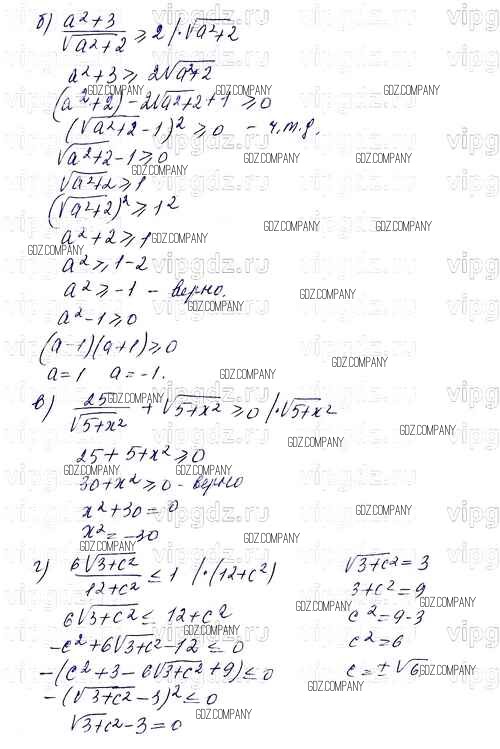 б) (a²+3)/√(a²+2) ≥ 2 /·√(a²+2)
a²+3 ≥ 2√(a²+2)
(a²+2) - 2√(a²+2) + 1 ≥ 0
(√(a²+2) - 1)² ≥ 0 - ч.т.д.
√(a²+2) - 1 ≥ 0
√(a²+2) ≥ 1
(√(a²+2))² ≥ 1²
a²+2 ≥ 1
a² ≥ 1-2
a² ≥ -1 - верно.
a²-1 ≥ 0
(a-1)(a+1) ≥ 0
a=1 a=-1.
в) 25/√(5+x²) + √(5+x²) ≥ 0 /·√(5+x²)
25 + 5+x² ≥ 0
30+x² ≥ 0 - верно
x²+30 = 0
x² = -30
г) 6√(3+c²)/(12+c²) ≤ 1 /·(12+c²)
6√(3+c²) ≤ 12+c²
-c²+6√(3+c²)-12 ≤ 0
-(c²+3-6√(3+c²)+9) ≤ 0
-(√(3+c²)-3)² ≤ 0
√(3+c²)-3=0
√(3+c²) = 3
3+c² = 9
c² = 9-3
c² = 6
c = ±√6
GDZ.COMPANY
vipgdz.ru